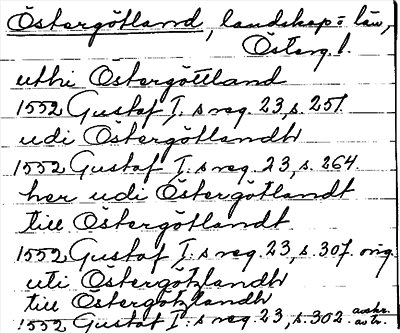 Östergötland, landskap = län,
Österg. l.
uthi Östergöttland
1552 Gustaf I:s reg. 23, s. 251.
udi Östergötlandh
1552 Gustaf I:s reg. 23, s. 264
her udi Östergötlandt
till Östergötlandt
1552 Gustaf I:s reg. 23, s. 307. orig.
uti Östergötzlandh
till Östergötzlandh
1552 Gustaf I:s reg. 23, s. 302 avskr.